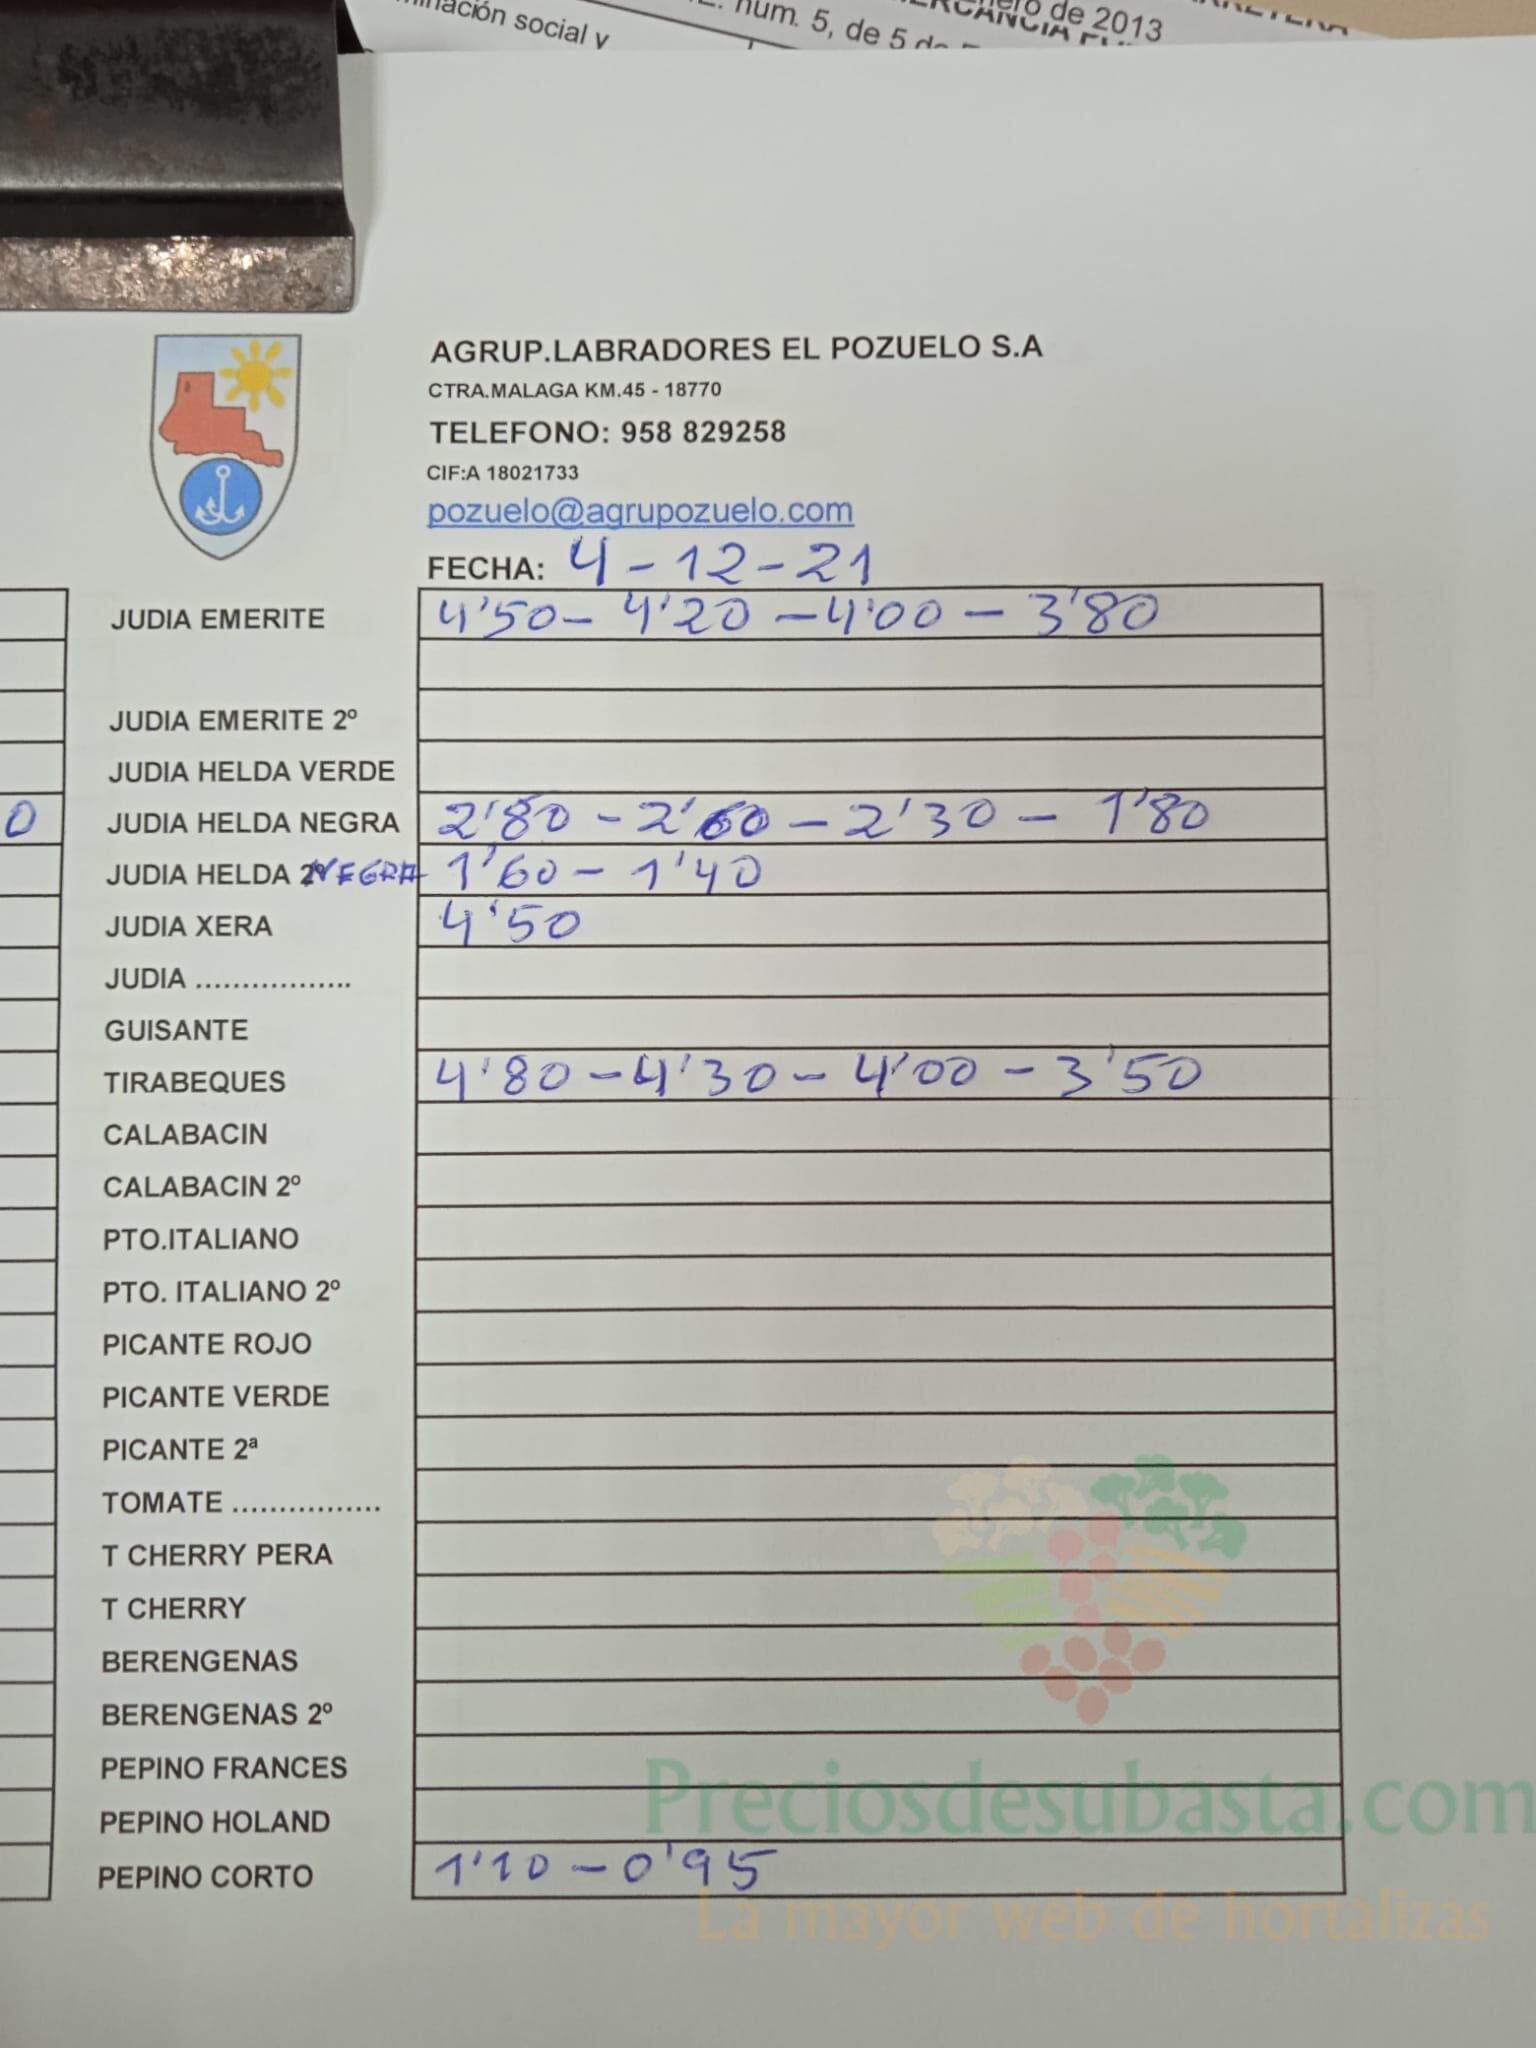 minación social y
núm. 5, de 5 de
ero de 2013
AGRUP.LABRADORES EL POZUELO S.A
CTRA.MALAGA KM.45 - 18770
TELEFONO: 958 829258
CIF:A 18021733
pozuelo@agrupozuelo.com
FECHA: 4-12-21
JUDIA EMERITE 4'50 - 4'20 - 4'00 - 3'80
JUDIA EMERITE 2º
JUDIA HELDA VERDE
0 JUDIA HELDA NEGRA 2'80 - 2'60 - 2'30 - 1'80
JUDIA HELDA 2º NEGRA 1'60 - 1'40
JUDIA XERA 4'50
JUDIA .................
GUISANTE
TIRABEQUES 4'80 - 4'30 - 4'00 - 3'50
CALABACIN
CALABACIN 2º
PTO.ITALIANO
PTO. ITALIANO 2º
PICANTE ROJO
PICANTE VERDE
PICANTE 2ª
TOMATE ................
T CHERRY PERA
T CHERRY
BERENGENAS
BERENGENAS 2º
PEPINO FRANCES
PEPINO HOLAND
Preciosdesubasta.com
PEPINO CORTO 1'10 - 0'95
La mayor web de hortalizas